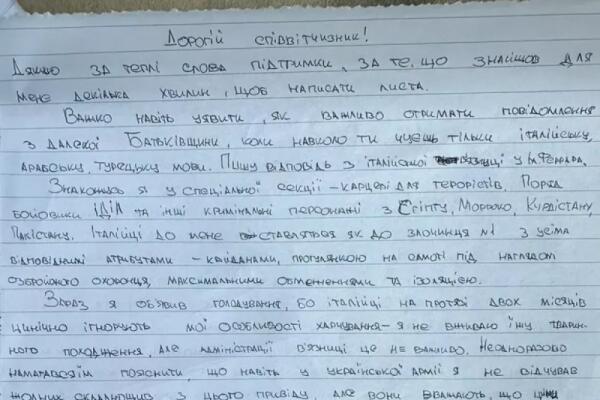 Дорогій співвітчизник!
Дякую за теплі слова підтримки, за те, що знайшов для
мене декілька хвилин, щоб написати листа.
Важко навіть уявити, як важливо отримати повідомлення
з далекої Батьківщини, коли навколо ти чуєш тільки італійську,
арабську, турецьку мови. Пишу відповідь з італійської у м. Феррара.
Знаходжусь я у спеціальной секції – карцері для терористів. Поряд
бойовики ІДІЛ та інші кримінальні персонажі з Єгипту, Морокко, Курдістану,
Пакістану. Італійці до мене ставляться як до злочинця №1 з усіма
відповідними атрибутами – кайданами, прогулянкою на самоті під наглядом
озбройоного охоронця, максимальними обмеженнями та ізоляцією.
Зараз я об'явив голодування, бо італійці на протязі двох місяців
цинічно ігнорують мої особливості харчування – я не вживаю їжу тварин-
ного походження, але адміністрації в'язниці це не важливо. Неодноразово
намагався їм пояснити, що навіть у української армії я не відчував
жодних складнощів з цього приводу, але вони вважають, що